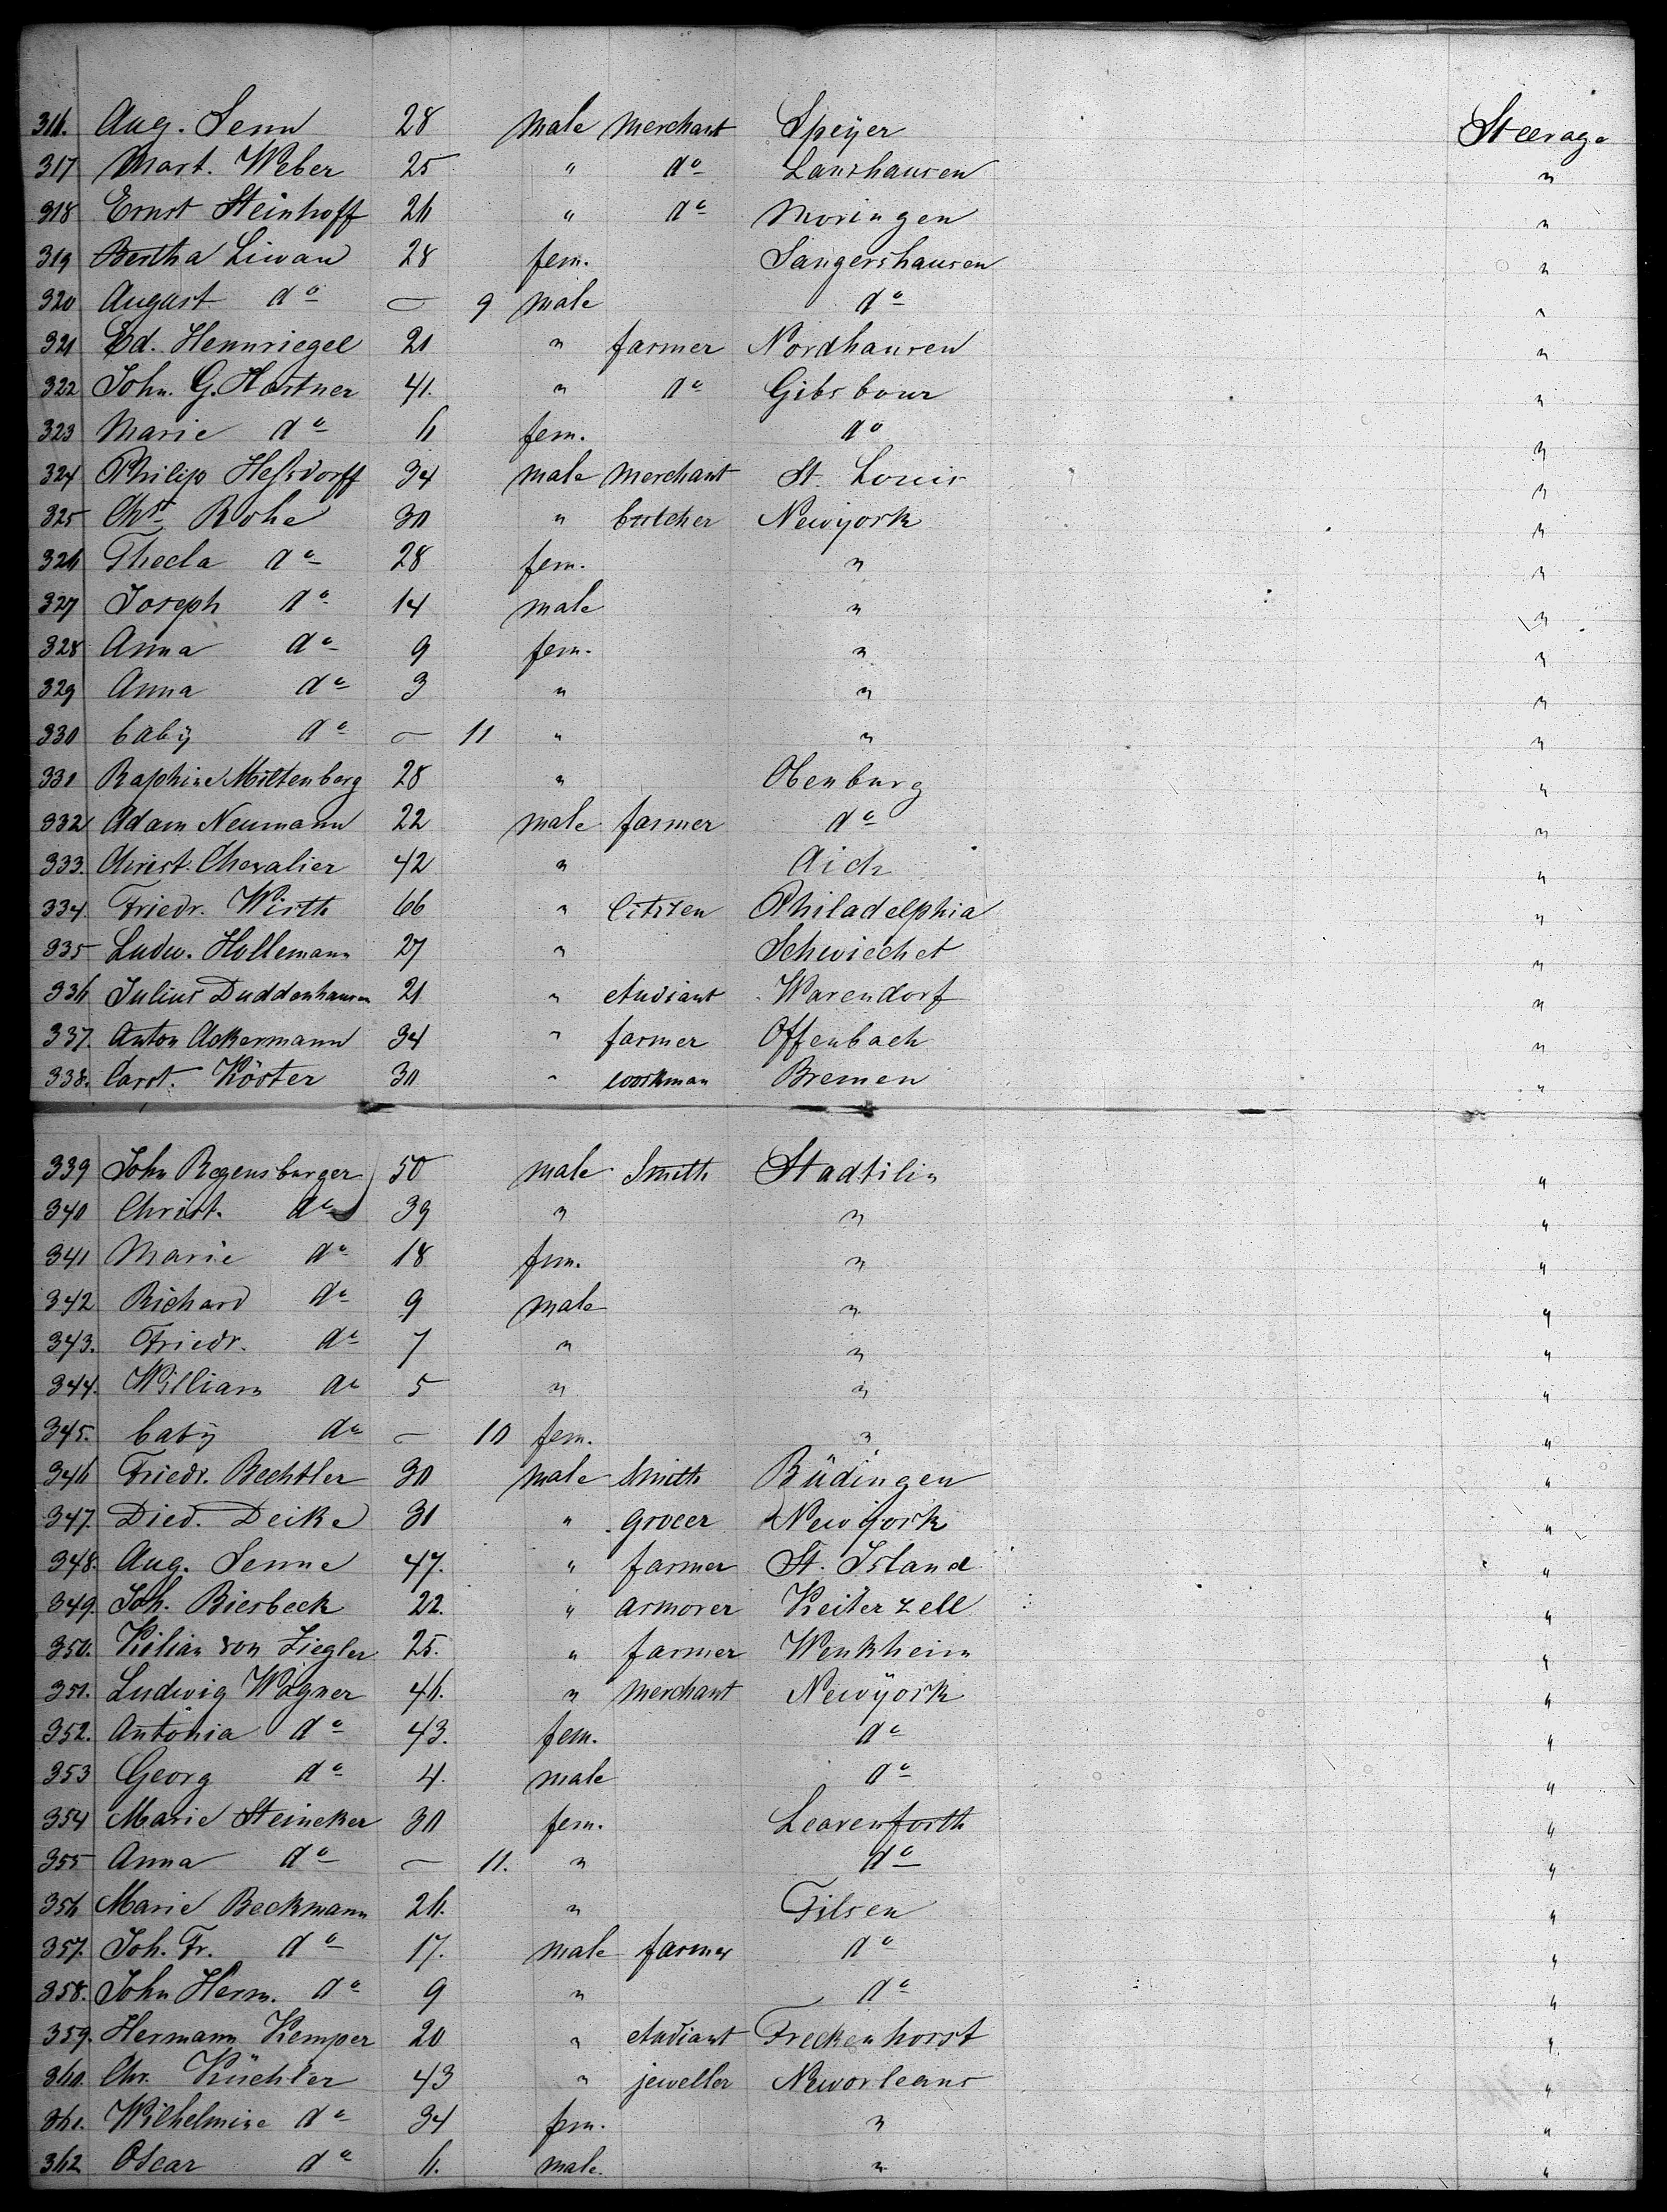 316. Aug. Senn 28 male merchant Speÿer Steerage
317 Mart. Weber 25 " do Lanzhausen "
318 Ernst Steinhoff 26 " do Moringen "
319 Bertha Liwan 28 fem. Sangershausen "
320 August do – 9 male do "
321 Ed. Hennriegel 21 " farmer Nordhausen "
322 John. G. Hartner 41. " do Gibsbour "
323 Marie do 6 fem. do "
324 Philip Heßdorff 34 male merchant St. Louis "
325 Chst Rohe 30 " butcher Newÿork "
326 Thecla do 28 fem. " "
327 Joseph do 14 male " "
328 Anna do 9 fem. " "
329 Anna do 3 " " "
330 babÿ do – 11 " " "
331 Raphine Miltenberg 28 " Obenburg "
332 Adam Neumann 22 male farmer do "
333. Christ. Chevalier 42 " Aich "
334. Friedr. Wirth 66 " Citizen Philadelphia "
335 Ludw. Hollemann 27 " Schwiechet "
336 Julius Duddenhausen 21 " studiant Warendorf "
337. Anton Ackermann 34 " farmer Offenbach "
338. Carst. Köster 30 " workman Bremen "
339 John Regensburger 50 male Smith Stadtilin "
340 Christ. do 39 " " "
341 Marie do 18 fem. " "
342 Richard do 9 male " "
343. Friedr. do 7 " " "
344. William do 5 " " "
345. babÿ do – 10 fem. " "
346 Friedr. Bechtler 30 male Smith Büdingen "
347. Died. Deike 31 " grocer Newÿork "
348. Aug. Senne 47. " farmer St. Island "
349. Joh. Biesbeck 22. " armorer Keiterzell "
350. Kilian von Ziegler 25. " farmer Wenkheim "
351. Ludwig Wagner 46. " merchant Newÿork "
352. Antonia do 43. fem. do "
353 Georg do 4. male do "
354 Marie Steineker 30 fem. Leavenforth "
355 Anna do – 11. " do "
356 Marie Beckmann 26. " Filsen "
357. Joh. Fr. do 17. male farmer do "
358. John Herm. do 9 " do "
359. Hermann Kemper 20 " studiant Freckenhorst "
360. Chr. Küchler 43 " jeweller Neworleans "
361. Wilhelmine do 34 fem. " "
362 Oscar do 6. male. " "